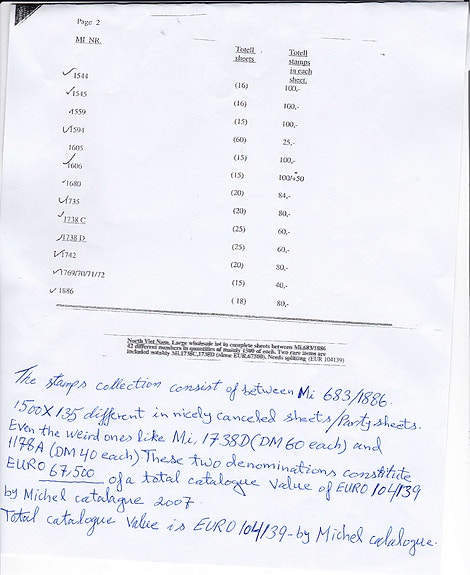 Page 2
MI NR.
Totell sheets
Totell stamps in each sheet.
✓1544 (16) 100,-
✓1545 (16) 100,-
1559 (15) 100,-
✓1594 (60) 25,-
1605 (15) 100,-
✓1606 (15) 100/+50
✓1680 (20) 84,-
✓1735 (20) 80,-
✓1738 C (25) 60,-
✓1738 D (25) 60,-
✓1742 (20) 80,-
✓1769/70/71/72 (15) 40,-
✓1886 (18) 80,-
North Viet Nam, Large wholesale lot in complete sheets between Mi.683/1886
42 different numbers in quantities of mainly 1500 of each. Two rare items are
included notably Mi.1738C,1738D (close EUR.67500). Needs splitting (EUR 104139)
The stamps collection consist of between Mi 683/1886.
1500X135 different in nicely canceled sheets/Party sheets.
Even the weird ones like Mi, 1738D (DM 60 each) and
1178A (DM 40 each) These two denominations constitute
EURO 67,500 of a total catalogue value of EURO 104139
by Michel catalague 2007.
Total catalogue value is EURO 104139- by Michel catalogue.